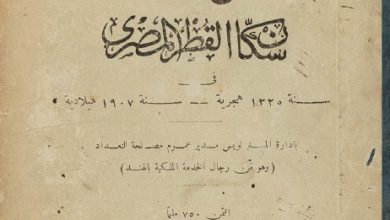 سكان القطر المصرى
فى
سنة ١٣٢٥ هجرية -- سنة ١٩٠٧ ميلادية
بادارة المستر لويس مدير عموم مصلحة التعداد
(وهو من رجال الخدمة الملكية بالهند)
الثمن ٧٥٠ مليما